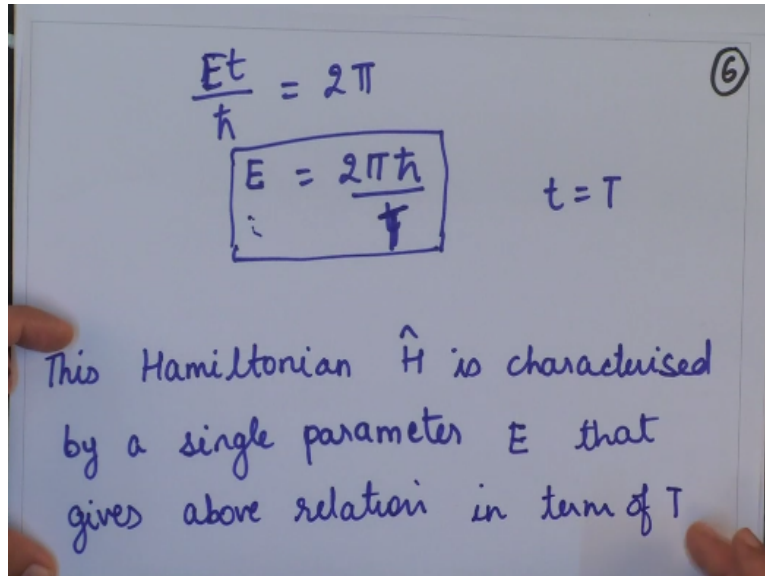 6
Et/ħ = 2π
E = 2πħ/T
t = T
This Hamiltonian Ĥ is characterised
by a single parameter E that
gives above relation in term of T